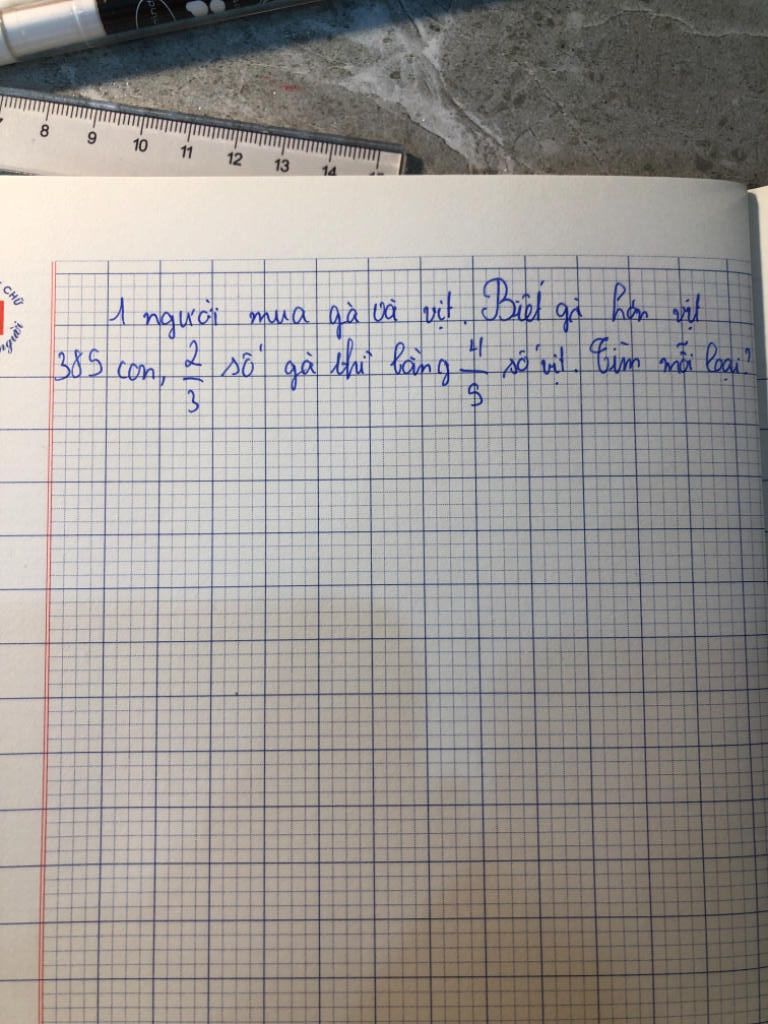 8 9 10 11 12 13 14
CHỮ
người
1 người mua gà và vịt. Biết gà hơn vịt
385 con, 2/3 số gà thì bằng 4/5 số vịt. Tìm mỗi loại?